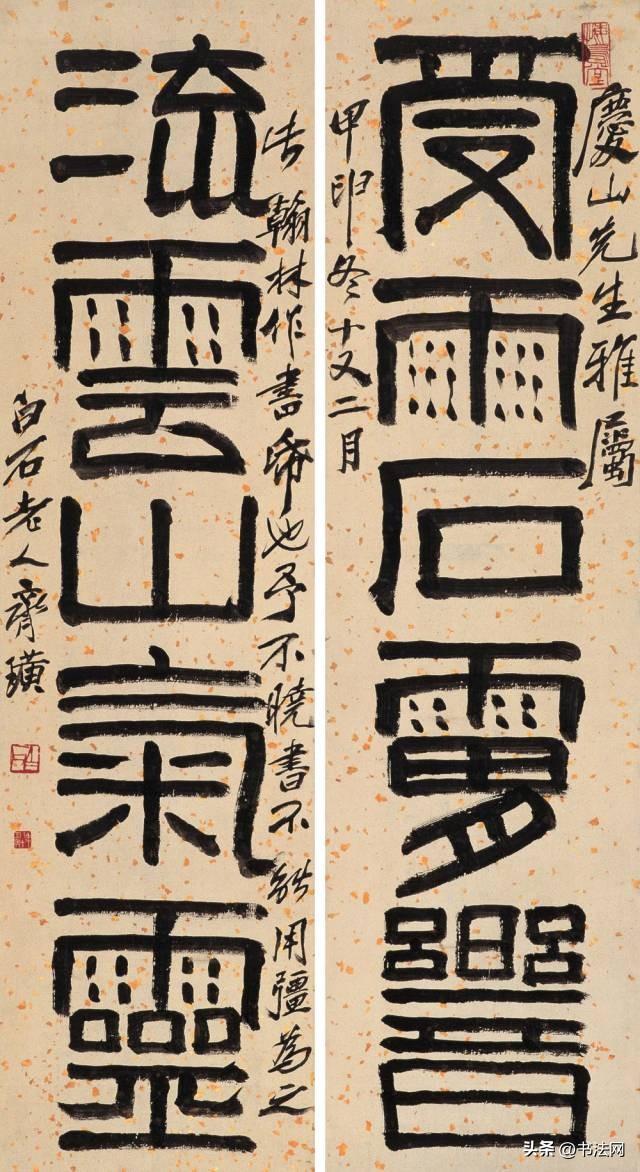 慶山先生雅屬
受雨石
甲申冬十又二月
流雲山氣靈
翰林作書也予不曉書不能用彊為之
白石老人齊璜
头条 @书法网